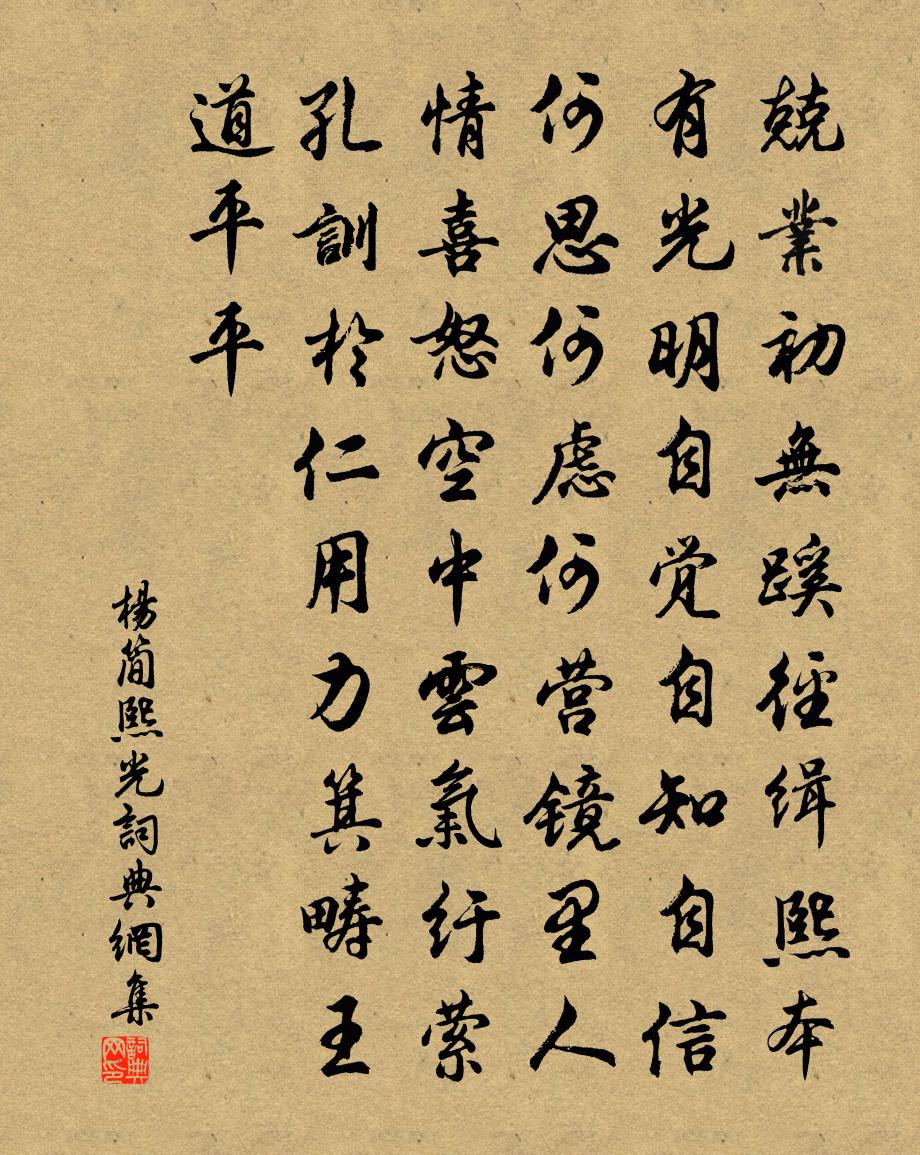 兢業初無蹊徑緝熙本
有光明自觉自知自信
何思何慮何营镜里人
情喜怒空中雲氣紆萦
孔訓於仁用力箕疇王
道平平
楊简熙光詞典網集
詞典网印